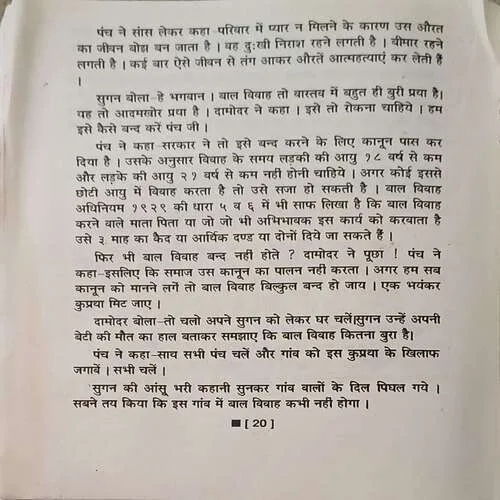 पंच ने सांस लेकर कहा-परिवार में प्यार न मिलने के कारण उस औरत
का जीवन बोझ बन जाता है । वह दुःखी निराश रहने लगती है । बीमार रहने
लगती है । कई बार ऐसे जीवन से तंग आकर औरतें आत्महत्याएं कर लेती हैं
।
सुगन बोला-हे भगवान । बाल विवाह तो वास्तव में बहुत ही बुरी प्रथा है।
यह तो आदमखोर प्रथा है । दामोदर ने कहा । इसे तो रोकना चाहिये । हम
इसे कैसे बन्द करें पंच जी ।
पंच ने कहा-सरकार ने तो इसे बन्द करने के लिए कानून पास कर
दिया है । उसके अनुसार विवाह के समय लड़की की आयु १८ वर्ष से कम
और लड़के की आयु २१ वर्ष से कम नही होनी चाहिये । अगर कोई इससे
छोटी आयु में विवाह करता है तो उसे सजा हो सकती है । बाल विवाह
अधिनियम १९२९ की धारा ५ व ६ में भी साफ लिखा है कि बाल विवाह
करने वाले माता पिता या जो जो भी अभिभावक इस कार्य को करवाता है
उसे ३ माह का कैद या आर्थिक दण्ड या दोनों दिये जा सकते हैं ।
फिर भी बाल विवाह बन्द नही होते ? दामोदर ने पूछा ! पंच ने
कहा-इसलिए कि समाज उस कानून का पालन नही करता । अगर हम सब
कानून को मानने लगें तो बाल विवाह बिल्कुल बन्द हो जाय । एक भयंकर
कुप्रथा मिट जाए ।
दामोदर बोला-तो चलो अपने सुगन को लेकर घर चलें।सुगन उन्हें अपनी
बेटी की मौत का हाल बताकर समझाए कि बाल विवाह कितना बुरा है।
पंच ने कहा-साथ सभी पंच चलें और गांव को इस कुप्रथा के खिलाफ
जगावें । सभी चलें ।
सुगन की आंसू भरी कहानी सुनकर गांव वालों के दिल पिघल गये ।
सबने तय किया कि इस गांव में बाल विवाह कभी नही होगा ।
■ [ 20 ]